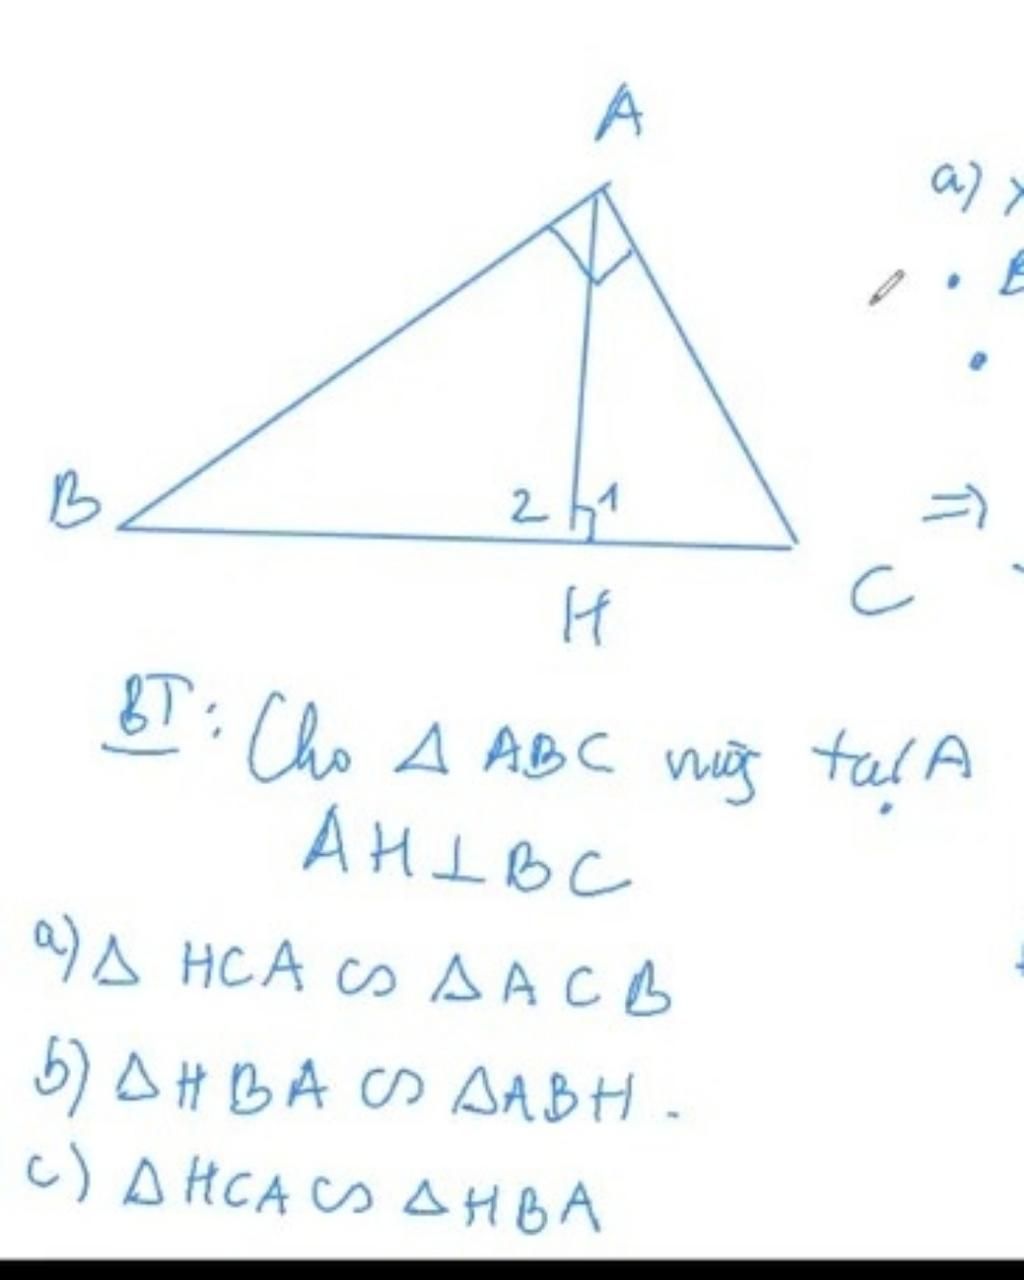 A
a)
B
2 1
C
H
⇒
BT: Cho Δ ABC vuông tại A
AH⊥BC
a) Δ HCA ∽ Δ ACB
b) Δ HBA ∽ ΔABH.
c) ΔHCA ∽ ΔHBA